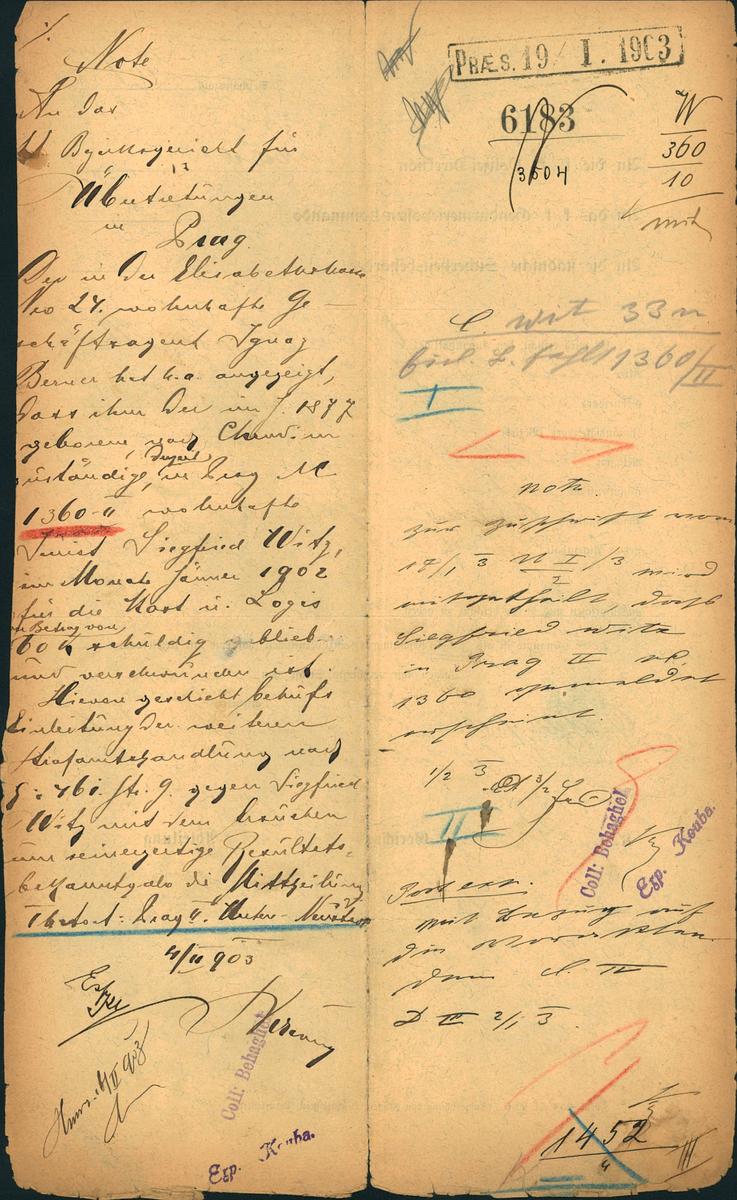 Note
An das
k. k. Bezirksgericht für
Übertretungen
in
Prag
Der in der Elisabethstrasse
Nro 24. wohnhafte Ge-
schäftsagent Ignaz
Berner hat h.a. angezeigt,
dass ihm der im J. 1877
geborene, nach Chrudim
zuständige, in Prag N
1360-II wohnhafte
Jurist Siegfried Witz,
im Monate Jänner 1902
für die Kost u. Logis
im Betrag von
60 K schuldig geblieben
und verschwunden ist.
Hievon geschieht behufs
Einleitung der weiteren
Strafamtshandlung nach
§: 461. St. G. gegen Siegfried
Witz mit dem Ersuchen
um seinerzeitige Resultats-
bekanntgabe die Mittheilung
Thatort: Prag II. 
4/II 903
Coll: Behaghel
Exp. Kouba.
PRÆS. 19 I. 1903
6183
3604
W
360
10
mit
C. Wit 33
1360/II
I
Note
zur Zuschrift vom
17/1 3 N I/2 /3 wird
mitgetheilt, dass
Siegfried Witz
in Prag II N.
1360 gemeldet
erscheint.
1/2 3
II
Coll: Behaghel
Exp. Kouba.
mit Bezug auf
1452
III